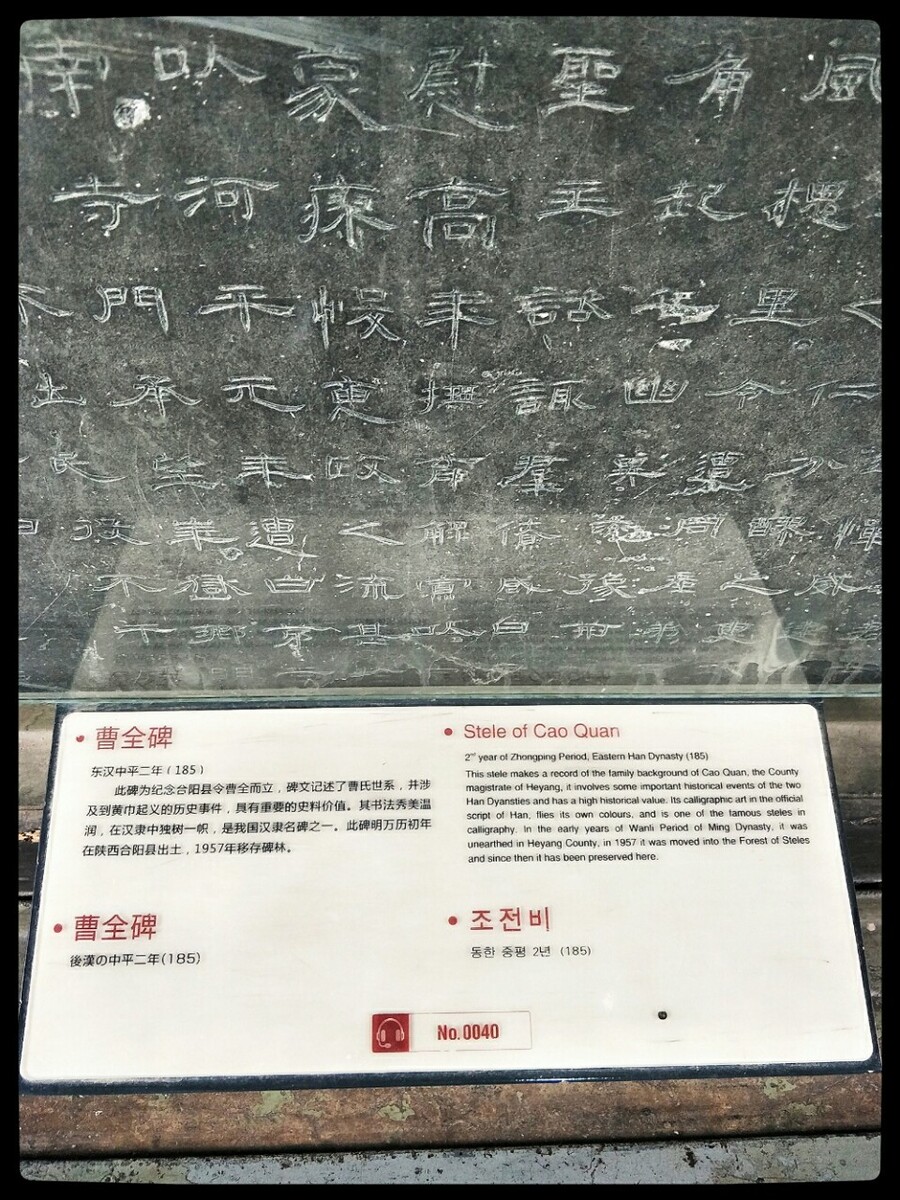 之仁分醪之
風槐里令遭同產弟
角起兵幽冀兗豫荊
聖主諮諏群僚咸曰
慰高年撫育鰥寡以
蒙瘳悛惠政之流甚
以河平元年遭白茅
南寺門承望華嶽鄉
役不干
曹全碑
东汉中平二年（185）
此碑为纪念合阳县令曹全而立，碑文记述了曹氏世系，并涉
及到黄巾起义的历史事件，具有重要的史料价值。其书法秀美温
润，在汉隶中独树一帜，是我国汉隶名碑之一。此碑明万历初年
在陕西合阳县出土，1957年移存碑林。
Stele of Cao Quan
2nd year of Zhongping Period, Eastern Han Dynasty (185)
This stele makes a record of the family background of Cao Quan, the County
magistrate of Heyang, it involves some important historical events of the two
Han Dyansties and has a high historical value. Its calligraphic art in the official
script of Han, flies its own colours, and is one of the famous steles in
calligraphy. In the early years of Wanli Period of Ming Dynasty, it was
unearthed in Heyang County, in 1957 it was moved into the Forest of Steles
and since then it has been preserved here.
曹全碑
後漢の中平二年(185)
조전비
동한 중평 2년 (185)
No.0040